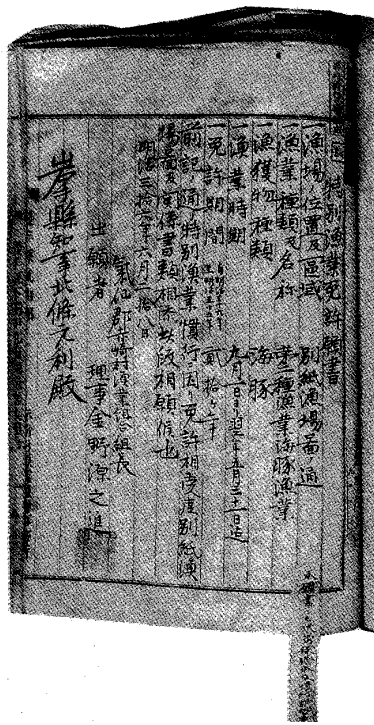 特別漁業免許願書
一漁場ノ位置及區域 別紙漁場圖ノ通
一漁業ノ種類及名称 第三種漁業海豚漁業
一漁獲物ノ種類 海豚
一漁業時期 九月一日ヨリ翌年五月三十一日迄
一免許期間 貳拾ヶ年
前記ノ通リ特別漁業慣行ニ因リ免許相受度別紙漁
場圖及関係書類相添此段相願候也
明治三拾六年六月二拾八日
氣仙郡 崎村漁業組合組長
出願者 理事金野源之進
岩手縣知事北條元利殿